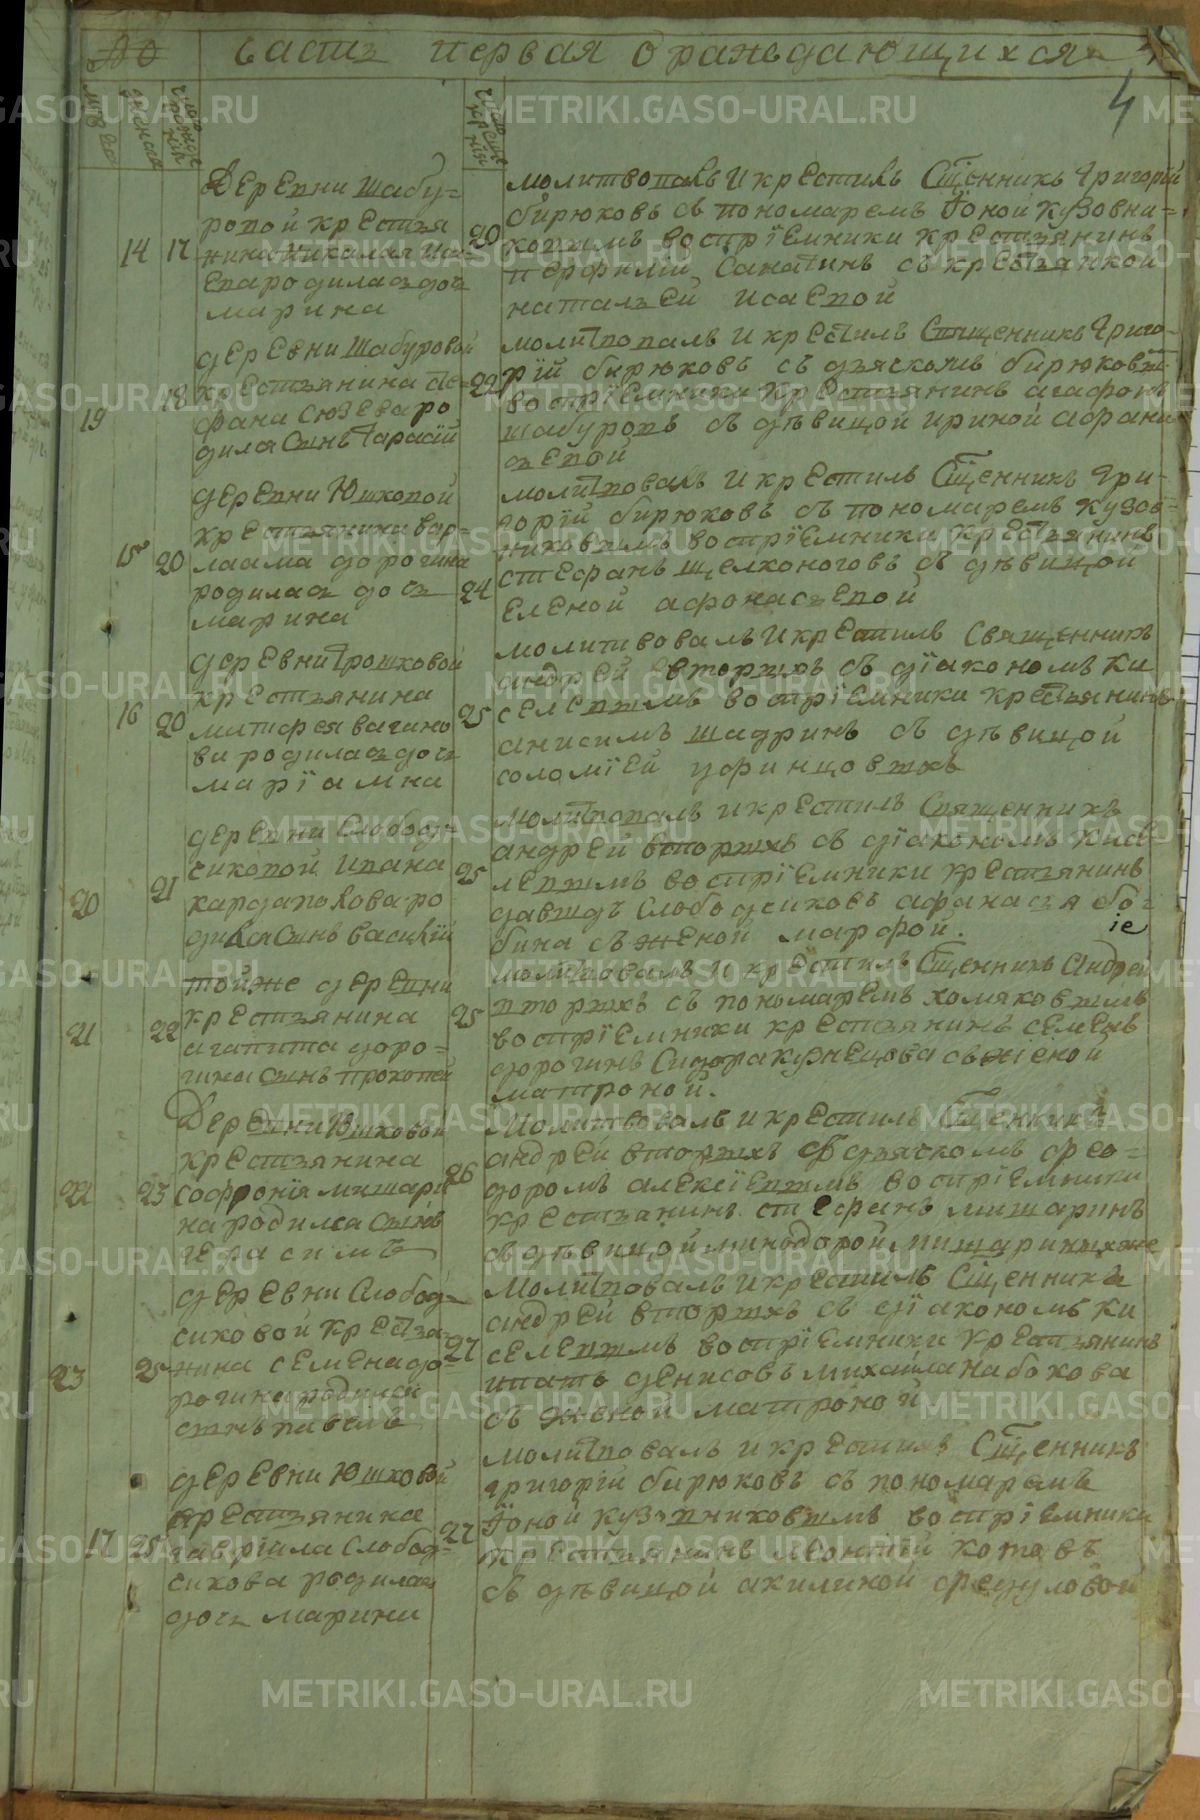 No часть первая о раждающихся
4
мужеска
женска
число рожденій
число крещенія
14 17 20
деревни Шабу=
ровой крестья
нина Николая
родилась дочь
марина
молитвовалъ и крестилъ Сщенникъ Григорій
бирюковъ съ пономаремъ Іоной кузовни=
ковымъ воспріемники крестьянинъ
перфилій с крестьянкой
натальей исаевой
19 18
деревни Шабуровой
крестьянина сте=
фана Сюзева ро
дился сынъ тарасій
молитвовалъ и крестилъ Священникъ Григо
рій бирюковъ съ дьяскомъ бирюковы
воспріемники крестьянинъ агафонъ
шабуровъ съ дѣвицой ириной афана
сьевой
15 20 24
деревни Юшковой
крестьянина вар=
лаама дорогина
родилась дочь
марина
молитвовалъ и крестилъ Сщенникъ Гри=
горій бирюковъ съ пономаремъ кузов=
никовымъ воспріемники крестьянинъ
стефанъ щелконоговъ съ дѣвицой
еленой афонасьевой
16 20 25
деревни трошковой
крестьянина
матфея вагано
ва родилась дочь
маріамна
молитвовалъ и крестилъ Священникъ
андрей вторыхъ съ діакономъ ки
селевымъ воспріемники крестьянинъ
анисимъ шадринъ съ дѣвицой
соломіей уфинцовыхъ
20 21 25
деревни Слобод=
чиковой ивана
кардаполова ро
дился сынъ василій
молитвовалъ и крестилъ Священникъ
андрей вторыхъ съ діакономъ кисе
левымъ воспріемники крестьянинъ
давыдъ Слободсиковъ афанасья бо=
бина съ женой марфой.
іе
21 22 25
той же деревни
крестьянина
агапита доро=
гина сынъ прокопей
молитвовалъ и крестилъ Сщенникъ Андрей
вторыхъ съ пономаремъ хомяковымъ
воспріемники крестьянинъ семенъ
дорогинъ Сидора кузнецова съ женой
матроной.
22 23 26
Деревни Юшковой
крестьянина
софронія мишари
на родился сынъ
герасимъ
молитвовалъ и крестилъ Сщенникъ
андрей вторыхъ с дьячкомъ фео=
доромъ алексіевымъ воспріемники
крестьянинъ стефанъ мишаринъ
съ дѣвицой минодорой мишариныхже
23 25 27
деревни Слобод=
сиковой крестья
нина семена до=
рогина родился
сынъ павелъ
молитвовалъ и крестилъ Сщенникъ
андрей вторыхъ съ діакономъ ки
селевымъ воспріемники крестьянинъ
ипатъ денисовъ михаила набокова
съ женой матроной
17 25 27
деревни Юшковой
крестьянина
гавріила Слобод=
сикова родилась
дочь марина
молитвовалъ и крестилъ Сщенникъ
григорій бирюковъ съ пономаремъ
Іоной кузовниковымъ воспріемники
крестьянинъ леонтій котовъ
съ дѣвицой акилиной федуловой